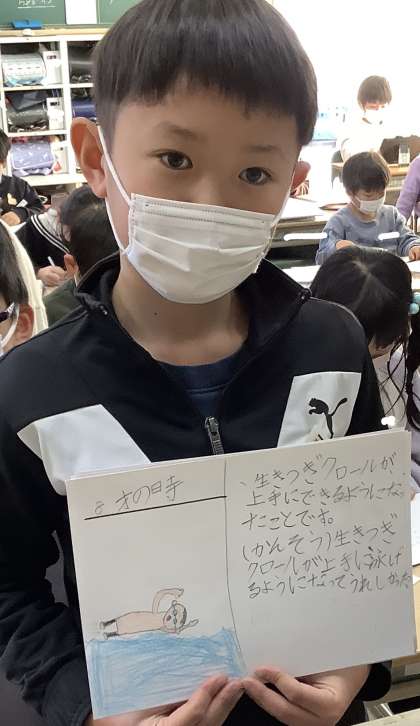 8才の時
、生きつぎクロールが
上手にできるようになっ
たことです。
(かんそう)生きつぎ
クロールが上手に泳げ
るようになってうれしかった